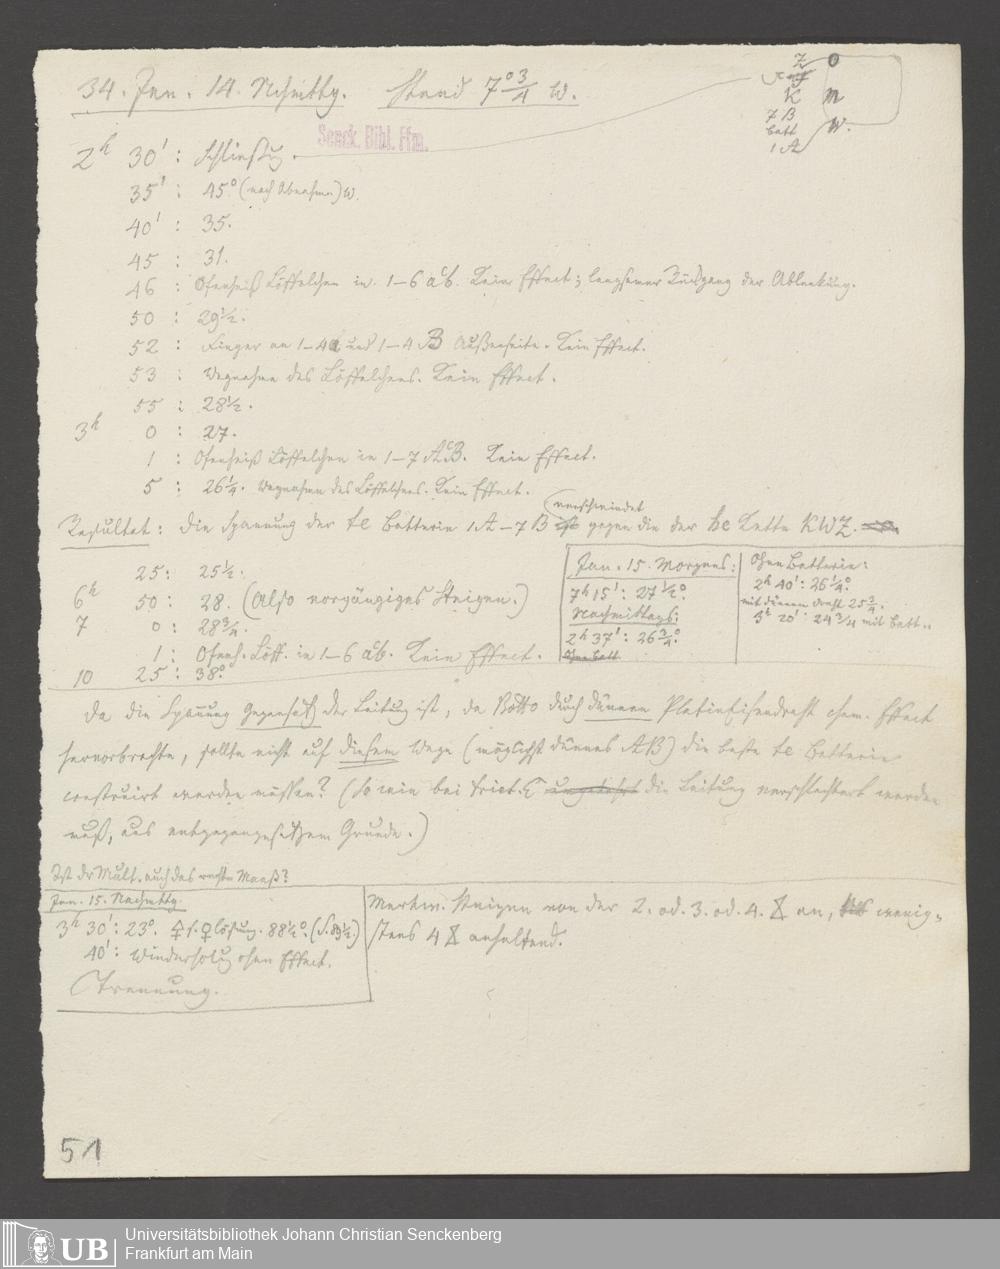 34. Jan. 14. Nchmittg. Stand 7°¾ W.
Z O
K M
7 B W.
batt
1 A
Senck. Bibl. Ffm.
2h 30': Schließg.
35': 45°. (nach Abnahme) W.
40': 35.
45: 31.
46: Ofenheiß Löffelchen in 1–6 acb. Kein Effect; langsamer Rückgang der Ablenkung.
50: 29½.
52: Finger an 1–4a und 1–4B Außenseite. Kein Effect.
53: Wegnahme des Löffelchens. Kein Effect.
55: 28½.
3h 0: 27.
1: Ofenheiß Löffelchen in 1–7 AcB. Kein Effect.
5: 26¼. Wegnahme des Löffelchens. Kein Effect.
verschwindet
Resultat: Die Spannung der te Batterie 1A–7B ist gegen die der he Kette KWZ.
25: 25½.
6h 50: 28. (Also vorgängiges Steigen.)
7 0: 28¾.
1: Ofenh. Löff. in 1–6 acb. Kein Effect.
10 25: 38°.
Jan. 15. Morgens:
7h 15': 27½°.
Nachmittags:
2h 37': 26¾°.
Ohne Batt.
Ohne Batterie:
2h 40': 26¼°.
mit dünnem Draht 25¾.
3h 20': 24¾ mit Batt..
Da die Spannung Gegensatz der Leitung ist, da Botto durch dünnen Platineisendraht chem. Effect
hervorbrachte, sollte nicht auf diesem Wege (möglichst dünnes AB) die beste te Batterie
construirt werden müssen? (So wie bei trict. E umgekehrt die Leitung verschlechtert werden
muß, aus entgegengesetztem Grunde.)
Ist dr Mult. auch das rechte Maaß?
Jan. 15. Nachmittg.
3h 30': 23°. ☿ s. ♀ lösung. 88½°. (S. 89½.)
40': Wiederholug ohne Effect.
Trennung.
Merkw. Steigen von der 2. od. 3. od. 4. X an, bis wenig-
stens 4 X anhaltend.
51
UB
Universitätsbibliothek Johann Christian Senckenberg
Frankfurt am Main